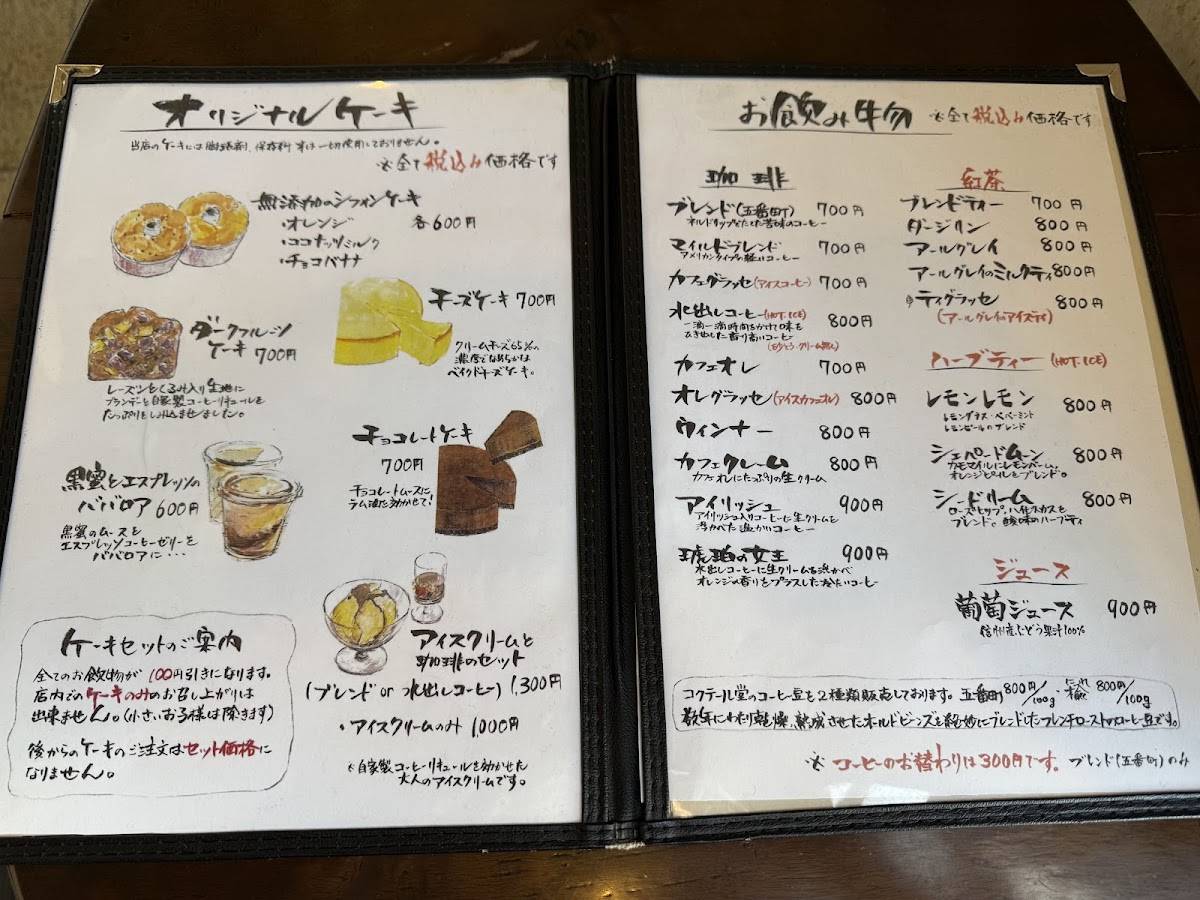 オリジナルケーキ
当店のケーキには膨張剤、保存料等は一切使用しておりません。
※全て税込み価格です
無添加のシフォンケーキ
・オレンジ 各600円
・ココナッツミルク
・チョコバナナ
チーズケーキ 700円
クリームチーズ65%の
濃厚でなめらかな
ベイクドチーズケーキ。
ダークフルーツ
ケーキ 700円
レーズンとくるみ入り生地に
ブランデーと自家製コーヒーリキュールを
たっぷりをしみ込ませました。
チョコレートケーキ
700円
チョコレートムースに
ラム酒を効かせて!
黒蜜とエスプレッソの
ババロア 600円
黒蜜のムースと
エスプレッソコーヒーゼリーを
ババロアに・・・
アイスクリームと
珈琲のセット
(ブレンド or 水出しコーヒー) 1,300円
・アイスクリームのみ 1,000円
※自家製コーヒーリキュールを効かせた
大人のアイスクリームです。
ケーキセットのご案内
全てのお飲物が100円引きになります。
店内でのケーキのみのお召し上がりは
出来ません。(小さいお子様は除きます)
後からのケーキのご注文はセット価格に
なりません。
お飲み物 ※全て税込み価格です
珈琲
ブレンド(五番町) 700円
ネルドリップでたてた苦味のコーヒー
マイルドブレンド 700円
アメリカンタイプの軽いコーヒー
カフェグラッセ(アイスコーヒー) 700円
水出しコーヒー(HOT.ICE) 800円
一滴一滴時間をかけて味を
ひき出した香り高いコーヒー
(おさとう・クリーム無し)
カフェオレ 700円
オレグラッセ(アイスカフェオレ) 800円
ウィンナー 800円
カフェクレーム 800円
カフェオレにたっぷりの生クリーム
アイリッシュ 900円
アイリッシュ入りコーヒーに生クリームを
浮かべた温かいコーヒー
琥珀の女王 900円
水出しコーヒーに生クリームを浮かべ
オレンジの香りをプラスした冷たいコーヒー
紅茶
ブレンドティー 700円
ダージリン 800円
アールグレイ 800円
アールグレイのミルクティ 800円
ティグラッセ 800円
(アールグレイのアイスティ)
ハーブティー (HOT.ICE)
レモンレモン 800円
レモングラス・ペパーミント
レモンピールのブレンド
シェパードムーン 800円
カモマイルにレモンバーム、
オレンジピールをブレンド。
シードリーム 800円
ローズヒップ、ハイビスカスを
ブレンド。酸味のハーブティ
ジュース
葡萄ジュース 900円
信州産ぶどう果汁100%
コクテール堂のコーヒー豆を2種類販売しております。五番町 800円/100g・楡 にれ 800円/100g
数年にわたり乾燥、熟成させたオールドビーンズを絶妙にブレンドしたフレンチローストのコーヒー豆です。
※コーヒーのお替わりは300円です。ブレンド(五番町)のみ